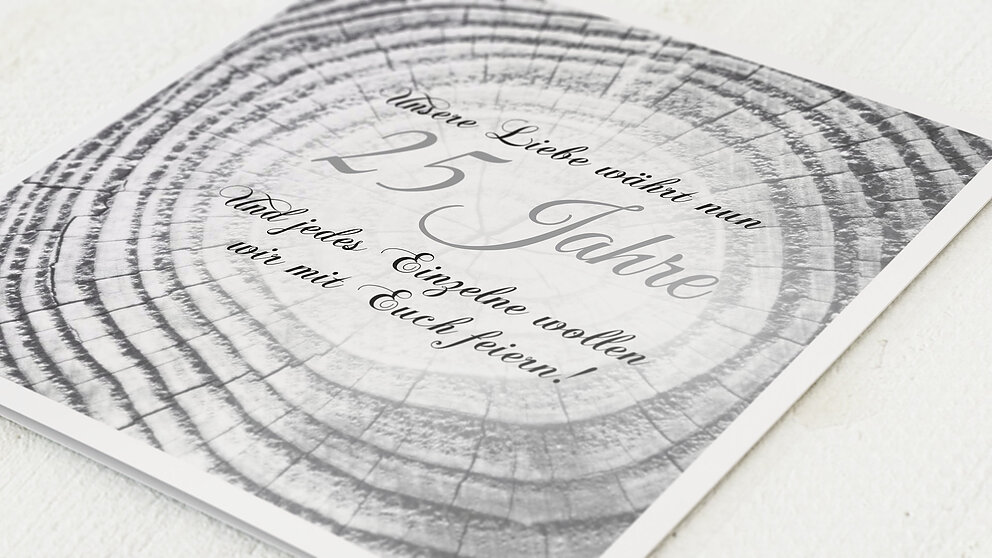 Unsere Liebe währt nun
25 Jahre
Und jedes Einzelne wollen
wir mit Euch feiern!